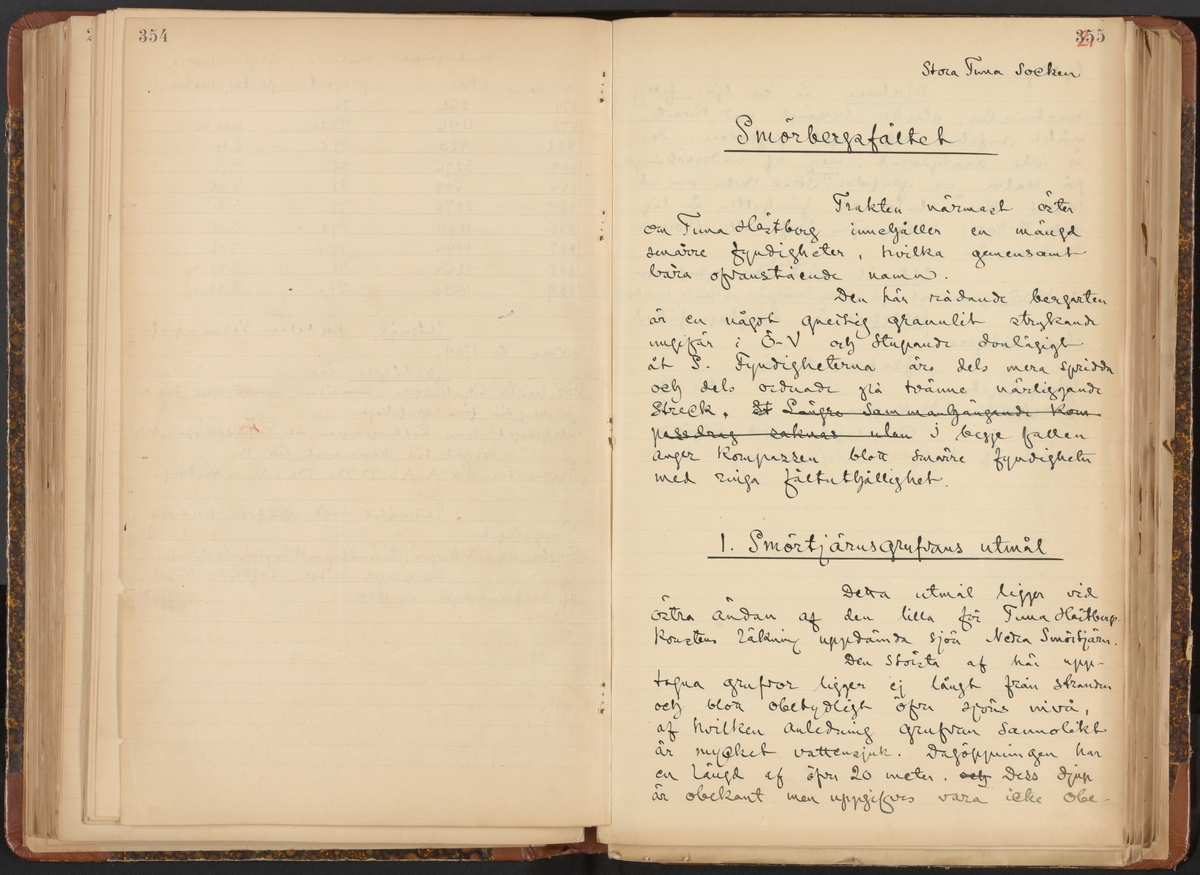 354
355
Stora Tuna Socken
Smörbergsfältet
Trakten närmast öster
om Tuna Hästberg innehåller en mängd
smärre fyndigheter, hvilka gemensamt
bära ofvanstående namn.
Den här rådande bergarten
är en något gneisig granulit strykande
ungifär i Ö-V och stupande donlägigt
åt S. Fyndigheterna äro dels mera spridda
och dels ordnade på tvänne närliggande
streck. Längre sammanhängande kom
passdrag saknas utan I begge fallen
anger kompassen blott smärre fyndigheter
med ringa fältuthållighet.
1. Smörtjärnsgrufvans utmål
Detta utmål ligger vid
östra ändan af den lilla för Tuna Hästberg
Konstens räkning uppdämda sjön Nedra Smörtjärn.
Den största af här upp-
tagna grufvor ligger ej långt från stranden
och blott obetydligt öfver sjöns nivå,
af hvilken anledning grufvan sannolikt
är mycket vattensjuk. Dagöppningen har
en längd af öfver 20 meter. och Dess djup
är obekant men uppgifves vara icke obe-